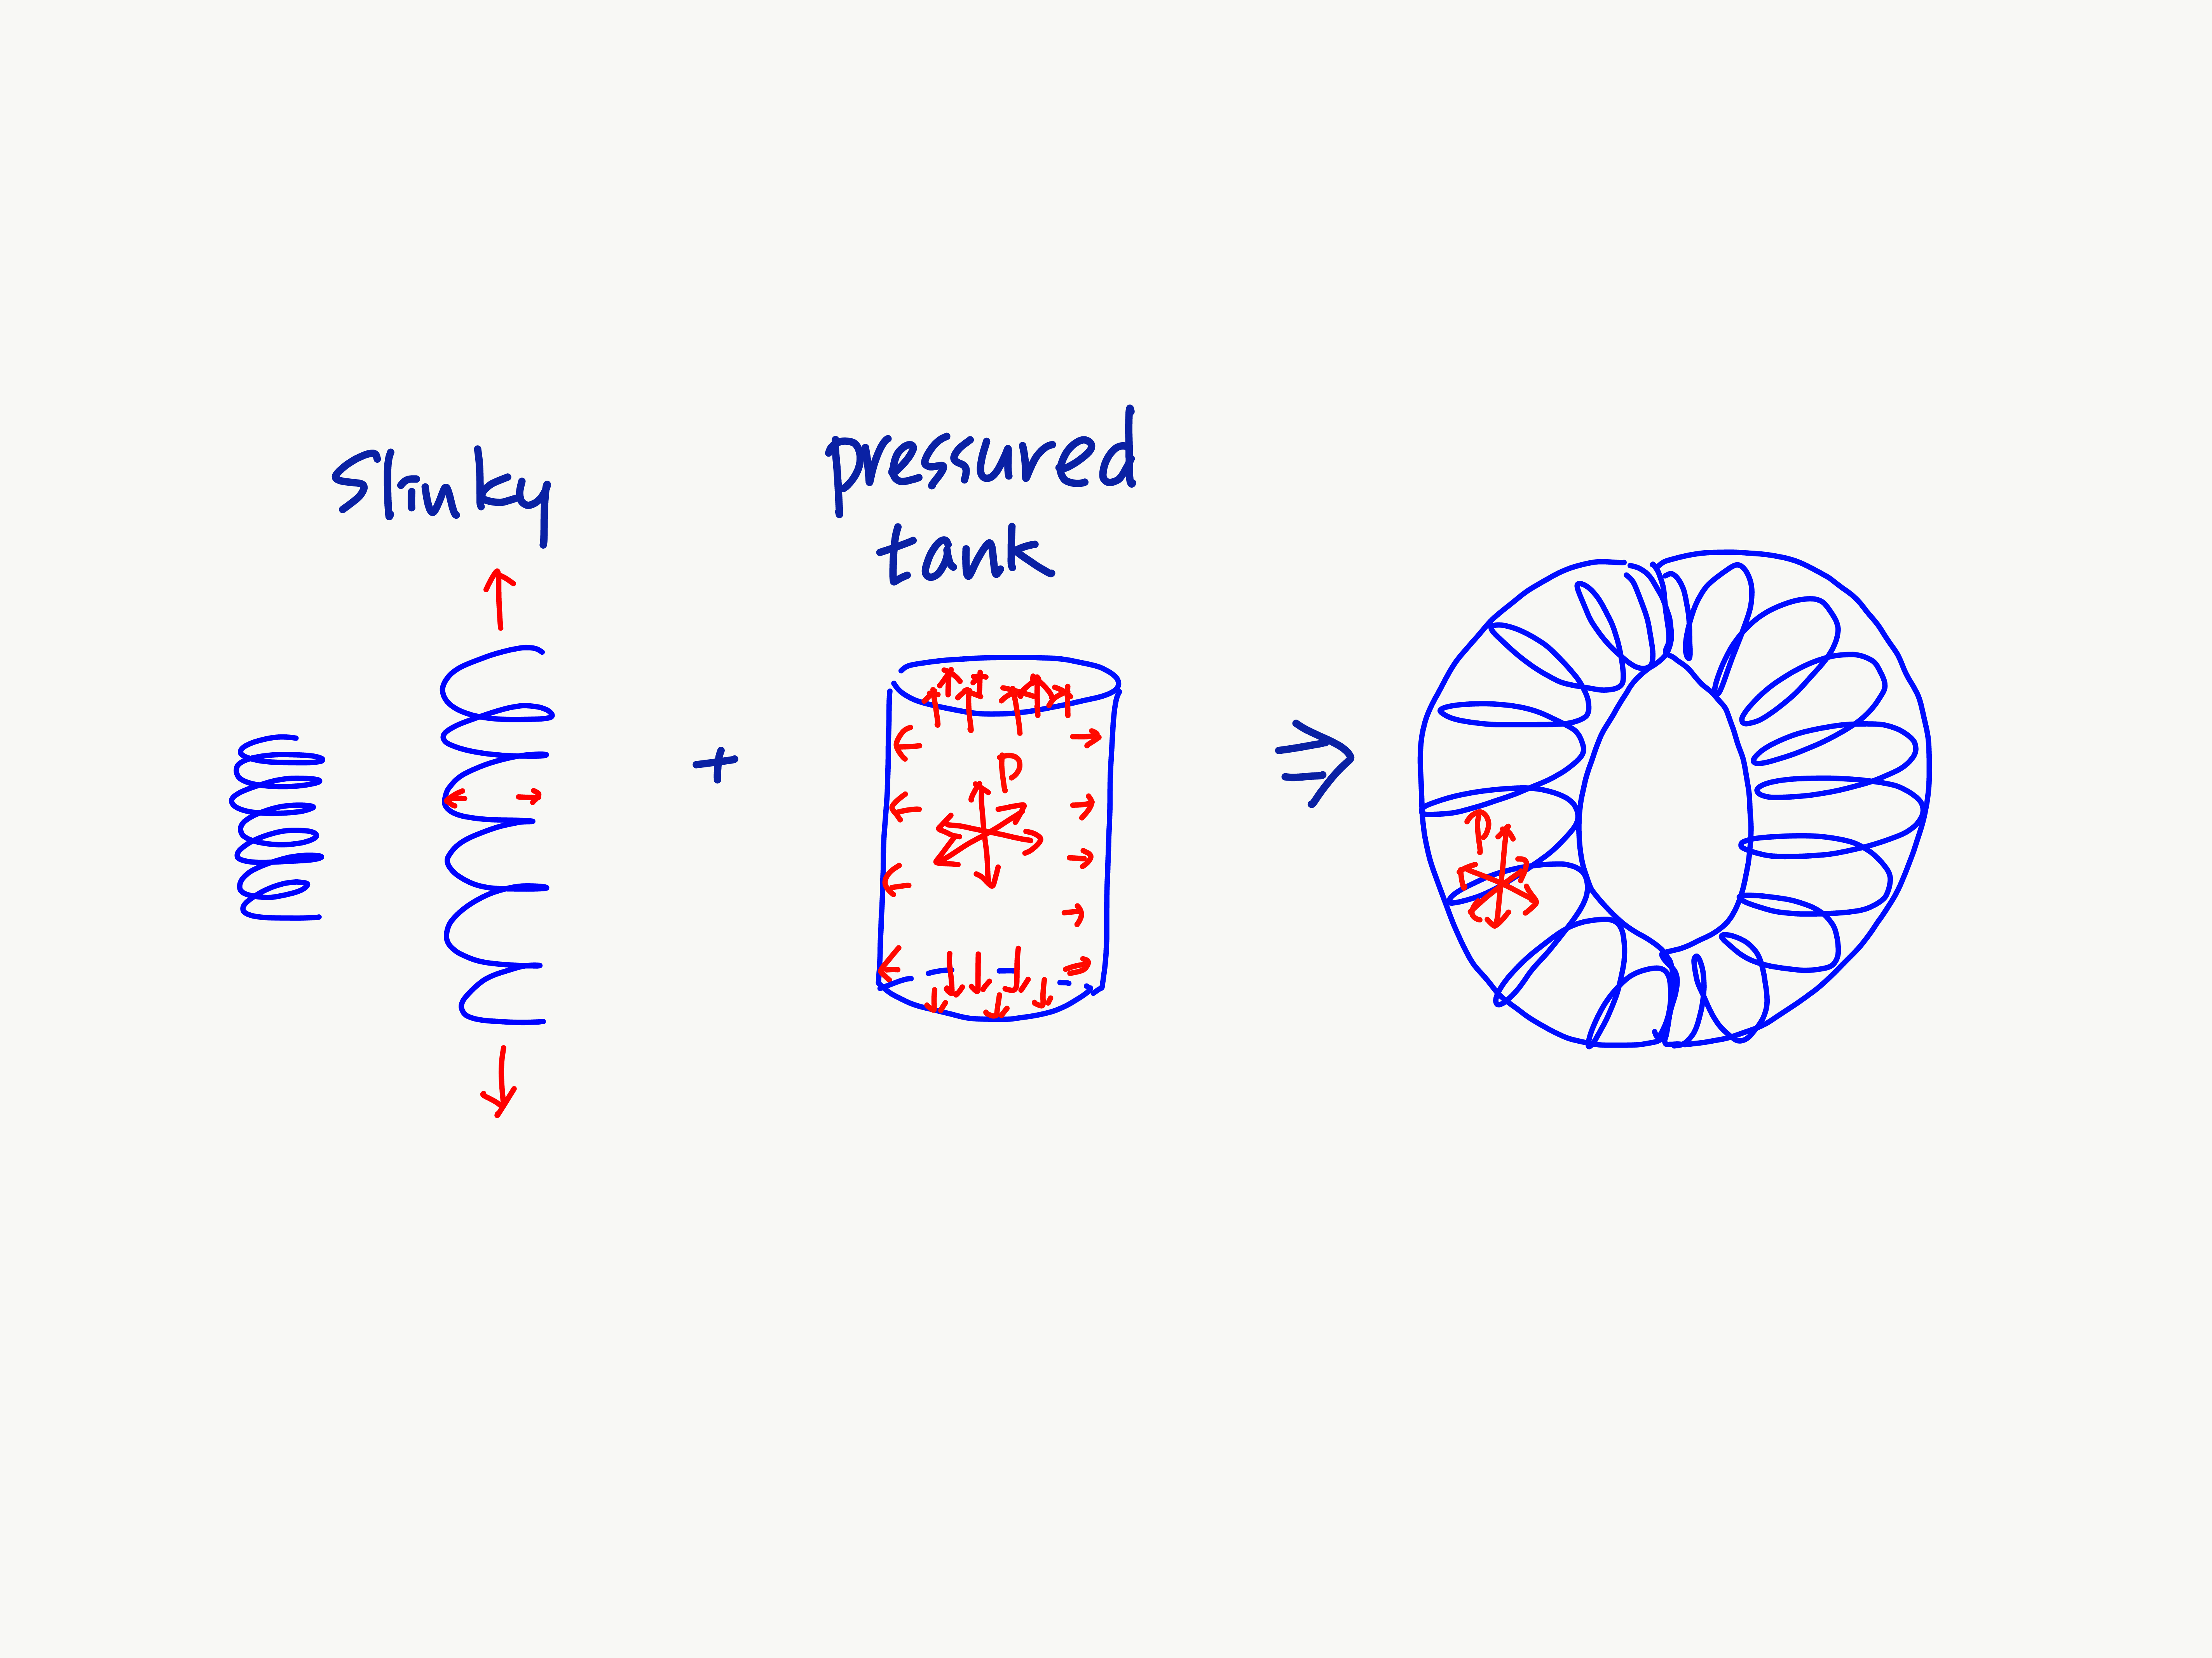 slinky
+
pressured
tank
P
⇒
P